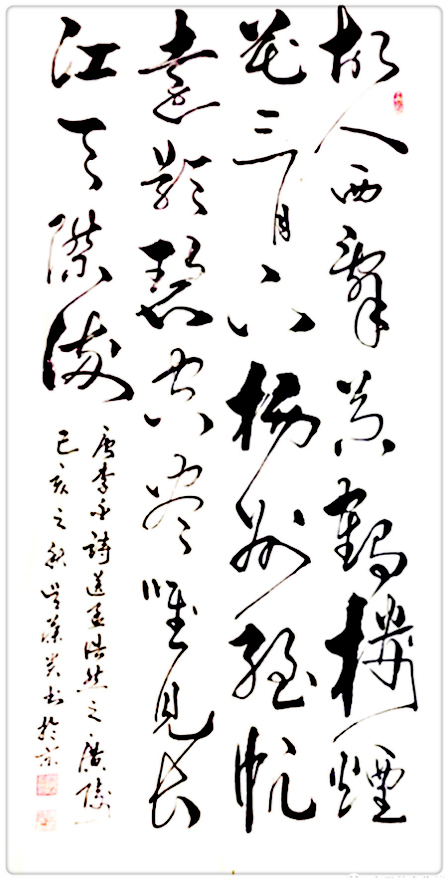 故人西辭黃鶴樓煙
花三月下揚州孤帆
遠影碧空盡唯見長
江天際流
唐李白詩送孟浩然之廣陵
己亥之秋書於京